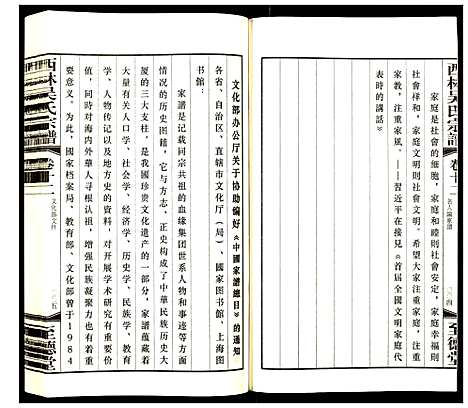 西林吴氏宗譜 卷十二 名人論家譜
至德堂
家庭是社會的细胞，家庭和睦則社會安定，家庭幸福則
社會祥和，家庭文明則社會文明。希望大家注重家庭，注重
家教，注重家風。——習近平在接見《首屆全國文明家庭代
表時的講話》
文化部办公厅关于协助编好《中國家譜總目》的通知
各省、自治區、直轄市文化厅（局）、國家图书館、上海图
书館：
家譜是记载同宗共祖的血缘集团世系人物和事迹等方面
情况的历史图籍，它与方志、正史构成了中華民族历史大
厦的三大支柱，是我國珍贵文化遺产的一部分，家譜蕴藏着
大量有关人口学、社会学、经济学、历史学、民族学、教育
学、人物传记以及地方史的資料，对开展学术研究有重要价
值，同時对海内外華人寻根认祖，增强民族凝聚力也有着重
要意义。为此，國家档案局、教育部、文化部曾于1984
西林吴氏宗譜 卷十二 文化部文件
至德堂